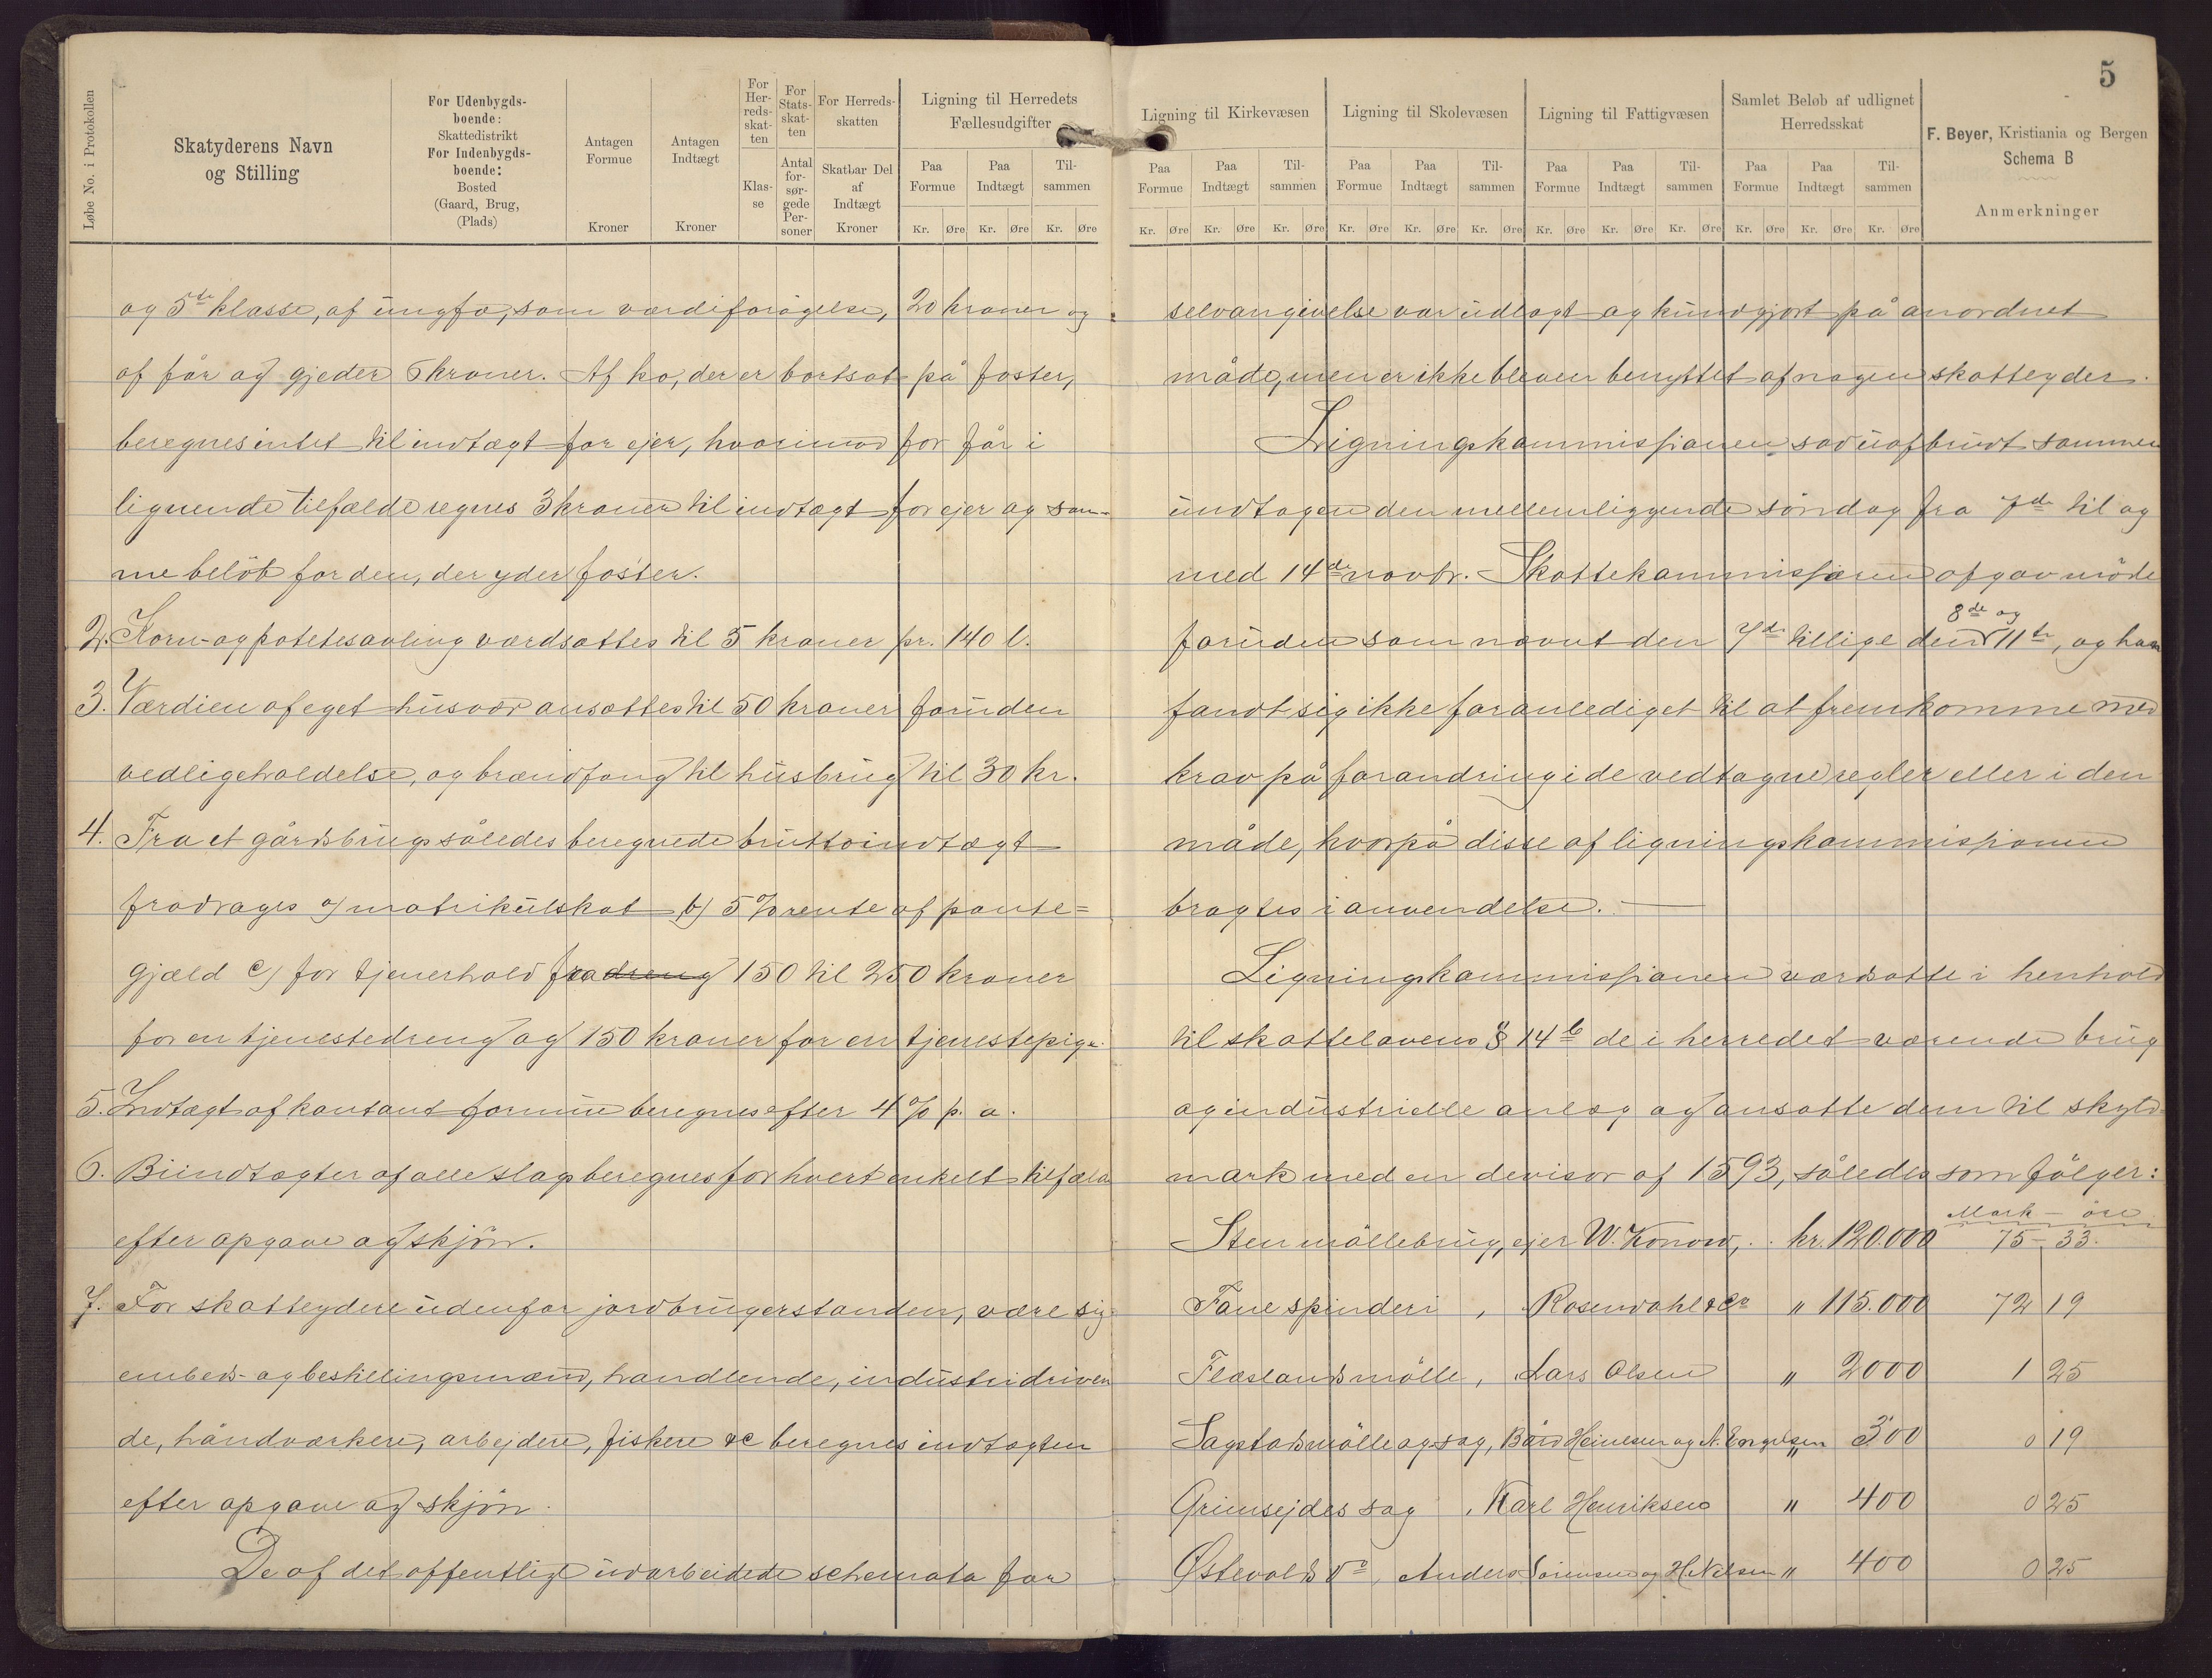 5
Løbe No. i Protokollen
Skatyderens Navn
og Stilling
For Udenbygds-
boende:
Skattedistrikt
For Indenbygds-
boende:
Bosted
(Gaard, Brug,
(Plads)
Antagen
Formue
Kroner
Antagen
Indtægt
Kroner
For
Her-
reds-
skat-
ten
Klas-
se
For
Stats-
skat-
ten
Antal
for-
sør-
gede
Per-
soner
For Herreds-
skatten
Skatbar Del
af
Indtægt
Kroner
Ligning til Herredets
Fællesudgifter
Paa
Formue
Paa
Indtægt
Til-
sammen
Kr. Øre Kr. Øre Kr. Øre
og 5te klasse, af ungfæ, som værdiforøgelse, 20 kroner og
af får og gjeder 5 kroner. Af ko, der er bortsat på foster,
beregnes intet til indtægt for ejer, hvorimod for får i
lignende tilfælde regnes 3 kroner til indtægt for ejer og sam-
me beløb for den, der yder foster.
2. Korn- og potetesavling værdsattes til 5 kroner pr. 140 l.
3. Værdien af eget husvær ansattes til 50 kroner foruden
vedligeholdelse, og brændfang til husbrug til 30 kr.
4. Fra et gårdsbrugs således beregnede bruttoindtægt
fradrages a) matrikulskat b) 5 % rente af pante=
gjæld c) for tjenerhold fra dreng 150 til 250 kroner
for en tjenestedreng og 150 kroner for en tjenestepige.
5. Indtægt af kontant formue beregnes efter 4 % p. a.
6. Biindtægter af alle slags beregnes for hvert enkelt tilfælde
efter opgave og skjøn.
7. For skatteydere udenfor jordbrugerstanden, være sig
embeds- og bestillingsmænd, handlende, industridriven
de, håndværkere, arbejdere, fiskere &c beregnes indtægten
efter opgave og skjøn.
De af det offentlige udarbeidede schemata for
Ligning til Kirkevæsen
Paa
Formue
Paa
Indtægt
Til-
sammen
Kr. Øre Kr. Øre Kr. Øre
Ligning til Skolevæsen
Paa
Formue
Paa
Indtægt
Til-
sammen
Kr. Øre Kr. Øre Kr. Øre
Ligning til Fattigvæsen
Paa
Formue
Paa
Indtægt
Til-
sammen
Kr. Øre Kr. Øre Kr. Øre
Samlet Beløb af udlignet
Herredsskat
Paa
Formue
Paa
Indtægt
Til-
sammen
Kr. Øre Kr. Øre Kr. Øre
F. Beyer, Kristiania og Bergen
Schema B
Anmerkninger
selvangivelse var udlagt og kundgjort på anordnet
måde, men er ikke bleven benyttet af nogen skatteyder.
Ligningskommissionen sad uafbrudt sammen
undtagen den mellemliggende søndag fra 7de til og
med 14de novbr. Skattekommissæren afgav møde
8de og
foruden som nævnt den 7de tillige den 11te, og han
fandt sig ikke foranlediget til at fremkomme med
krav på forandring i de vedtagne regler eller i den
måde, hvorpå disse af ligningskommissionen
bragtes i anvendelse.
Ligningskommissionen værdsatte i henhold
til skattelovens § 14 b de i herredet værende brug
og industrielle anlæg og ansatte dem til skyld-
mark med en devisor af 1593, således som følger:
Mark - øre
Sten møllebrug, ejer W. Konow, . . kr. 120.000 75 - 33.
Fane spinderi , Rosendahl & Co " 115.000 72 19
Flæslands mølle, Lars Olsen " 2000 1 25
Sagstads mølle og sag, Bård Heinesen og N. Engelsen " 300 0 19
Grimsejdes sag , Karl Henriksen " 400 0 25
Østevolds do , Anders Sørensen og H. Nilsen " 400 0 25